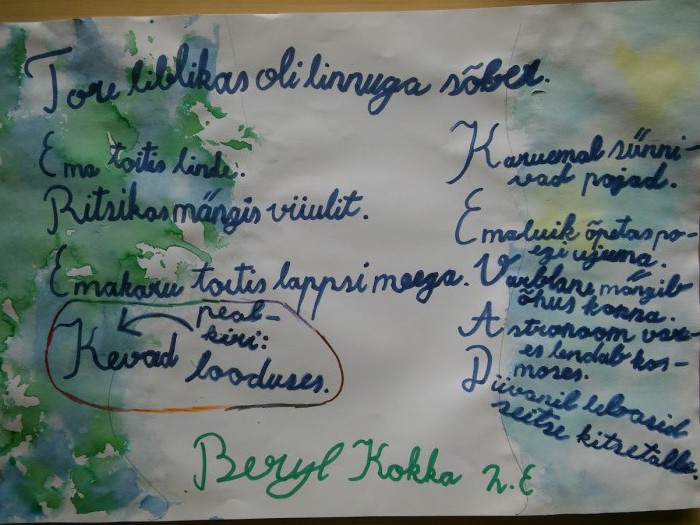 Tore liblikas oli linnuga sõber.
Ema toitis linde.
Ritsikas mängis viiulit.
Emakaru toitis lappsi meega.
pealkiri:
Kevad looduses.
Karuemal sünni-
vad pojad.
Emaluik õpetas po-
egi ujuma.
Varblane mängib
õhus konna.
Astronoom var-
es lendab kos-
moses.
Diivanil lebasid
seitse kitsetalle.
Beryl Kokka 2. E